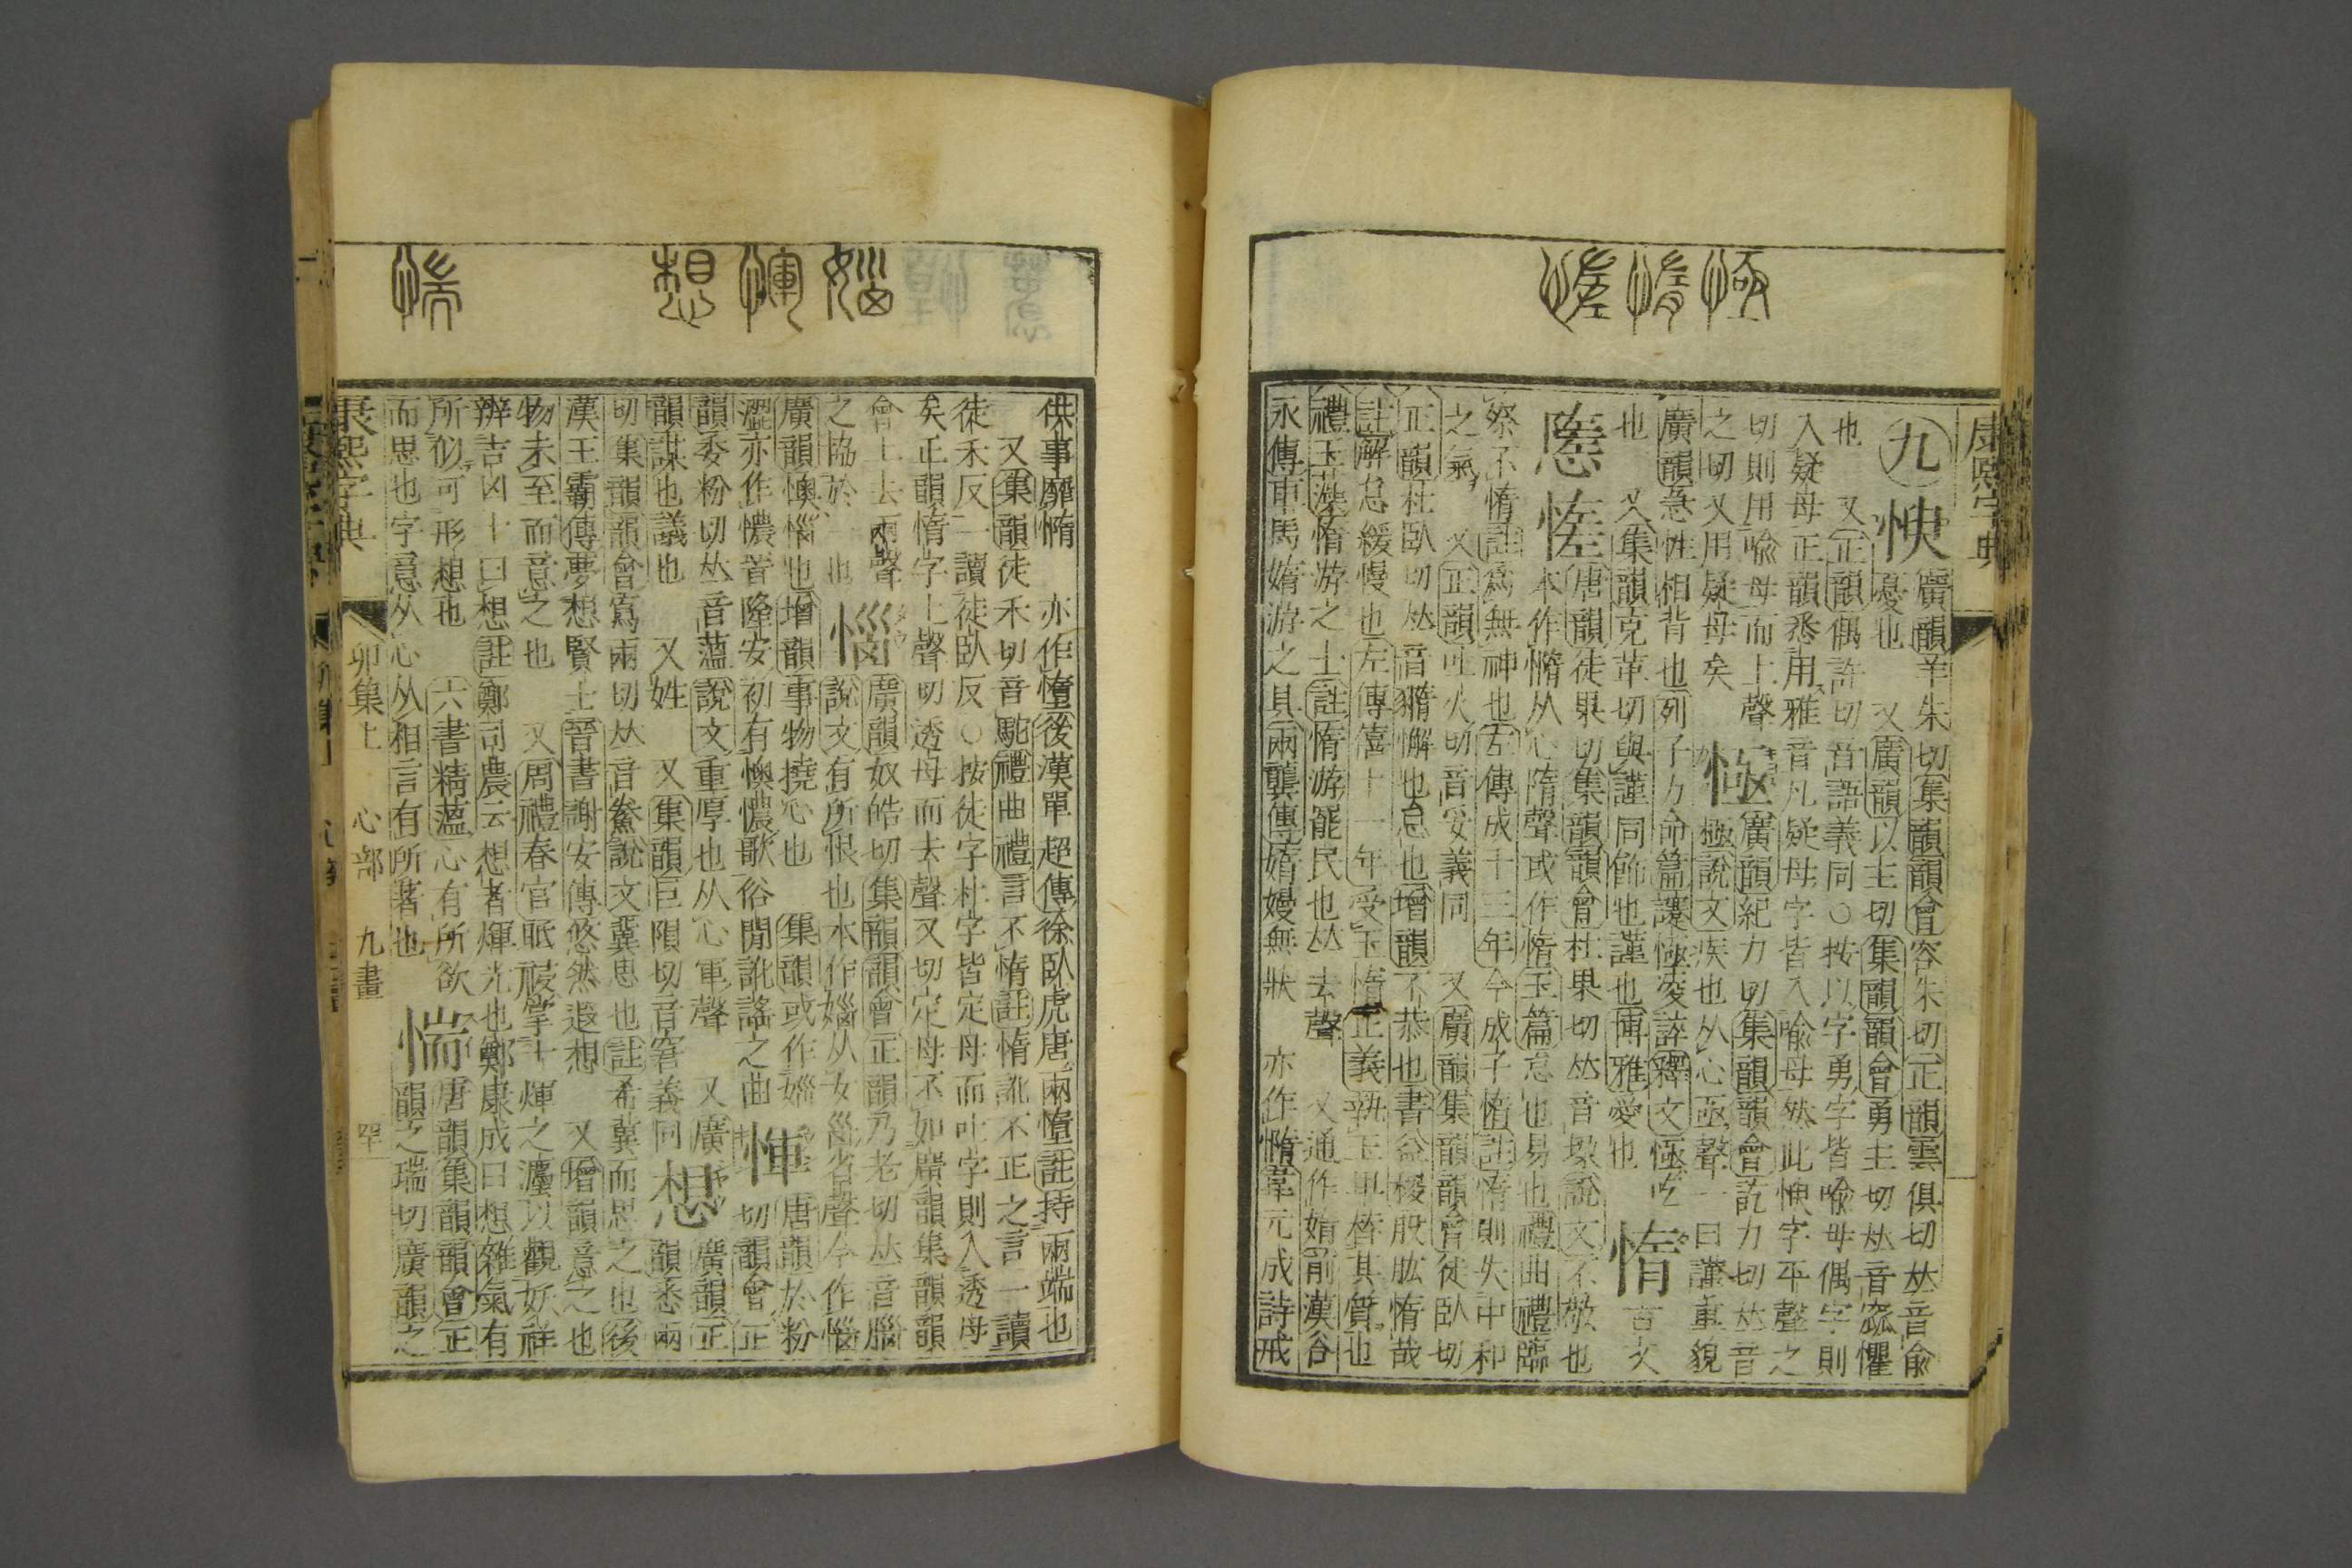 康熙字典
九
愉廣韻羊朱切集韻韻會容朱切正韻雲俱切𠀤音俞
憂也 又廣韻以主切集韻韻會勇主切𠀤音窳懼
也 又正韻偶許切音語義同○按以字勇字皆喻母偶字則
入疑母正韻悉用雅音凡疑母字皆入喻母然此㥚字平聲之
切則用喻母而上聲
之切又用疑母矣
㥛廣韻紀力切集韻韻會訖力切𠀤音
極說文疾也从心亟聲一曰謹重貌
廣韻急性相背也列子力命篇讓㥛凌誶釋文㥛吃
也 又集韻克革切與諽同飾也謹也博雅愛也
惰古文
唐韻徒果切集韻韻會杜果切𠀤音垜說文不敬也
本作憜从心隋聲或作惰玉篇怠也易也禮曲禮臨
祭不惰註爲無神也左傳成十三年今成子惰註惰則失中和
之氣 又正韻吐火切音妥義同 又廣韻集韻韻會徒臥切
正韻杜臥切𠀤音䐉懈也怠也增韻不恭也書益稷股肱惰哉
註解怠緩慢也左傳僖十一年受玉惰正義執玉卑替其質也
禮玉藻惰游之士註惰游罷民也𠀤去聲 又通作媠前漢谷
永傳車馬媠游之具兩龔傳媠嫚無狀 亦作憜韋元成詩戒
供事靡憜 亦作㥩後漢單超傳徐臥虎唐兩㥩註持兩端也
又集韻徒禾切音駝禮曲禮言不惰註惰訛不正之言一讀
徒禾反一讀徒臥反○按徒字杜字皆定母而吐字則入透母
矣正韻惰字上聲切透母而去聲又切定母不如廣韻集韻韻
會上去兩聲
之協於一也
惱廣韻奴皓切集韻韻會正韻乃老切𠀤音腦
說文有所恨也本作㛴从女𡿺省聲今作惱
廣韻懊惱也增韻事物撓心也 集韻或作㛴
澀亦作憹晉隆安初有懊憹歌俗閒訛謠之曲
惲唐韻於粉
切韻會正
韻委粉切𠀤音薀說文重厚也从心軍聲 又廣
韻謀也議也 又姓 又集韻巨隕切音窘義同
想廣韻正
韻悉兩
切集韻韻會寫兩切𠀤音鯗說文冀思也註希冀而思之也後
漢王霸傳夢想賢士晉書謝安傳悠然遐想 又增韻意之也
物未至而意之也 又周禮春官眡祲掌十煇之灋以觀妖祥
辨吉凶十曰想註鄭司農云想者煇光也鄭康成曰想雜氣有
所似可形想也 六書精薀心有所欲
而思也字意从心从相言有所著也
惴唐韻集韻韻會正
韻之瑞切廣韻之
康熙字典 卯集上 心部 九畫